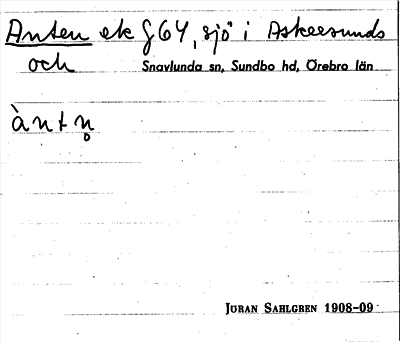 Anten ek g 64, sjö i Askersunds
och Snavlunda sn, Sundbo hd, Örebro län
àntn̥
JÖRAN SAHLGREN 1908-09